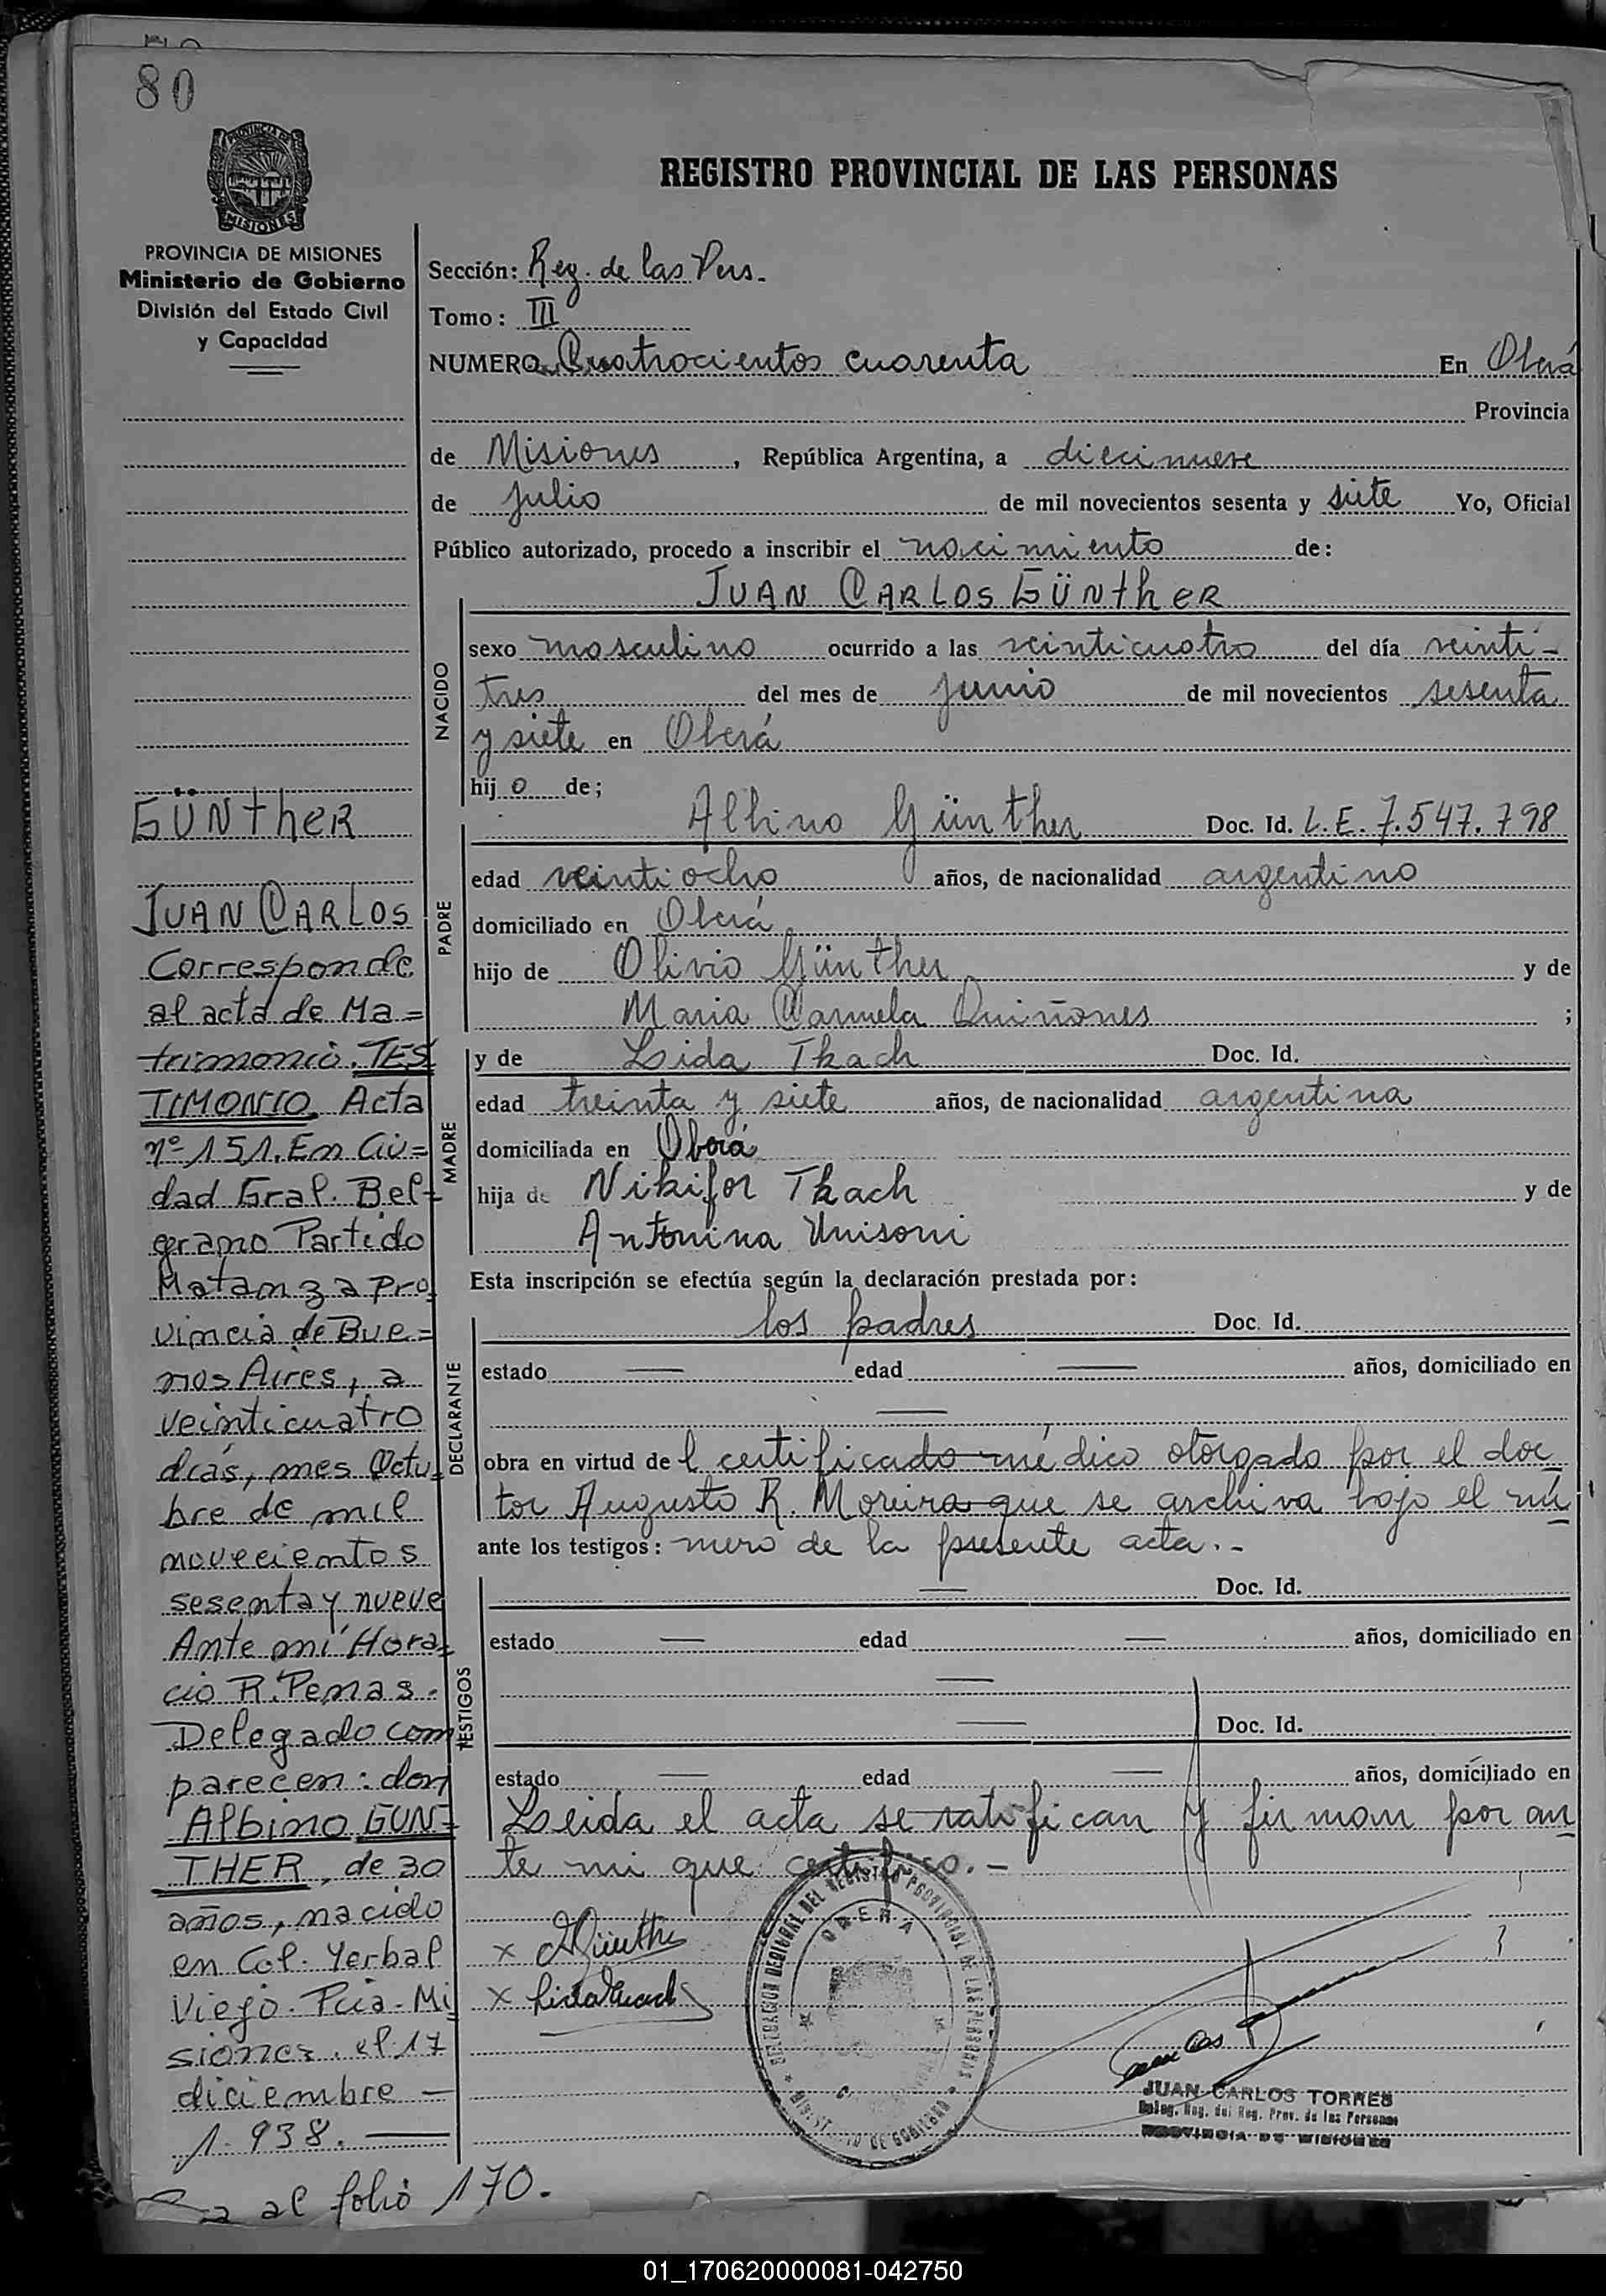 80
PROVINCIA DE
MISIONES
PROVINCIA DE MISIONES
Ministerio de Gobierno
División del Estado Civil
y Capacidad
REGISTRO PROVINCIAL DE LAS PERSONAS
Sección: Reg. de las Pers.
Tomo: III
NUMERO Cuatrocientos cuarenta En Oberá
Provincia
de Misiones, República Argentina, a diecinueve
de julio de mil novecientos sesenta y siete Yo, Oficial
Público autorizado, procedo a inscribir el nacimiento de:
JUAN CARLOS GÜNtheR
NACIDO
sexo masculino ocurrido a las veinticuatro del día veinti-
tres del mes de junio de mil novecientos sesenta
y siete en Oberá
hijo de;
PADRE
Albino Günther Doc. Id. L.E. 7.547.798
edad veintiocho años, de nacionalidad argentino
domiciliado en Oberá
hijo de Olivio Günther y de
Maria Carmela Quiñones ;
MADRE
y de Lida Tkach Doc. Id.
edad treinta y siete años, de nacionalidad argentina
domiciliada en Oberá
hija de Nikifor Tkach y de
Antonina Unisoni
Esta inscripción se efectúa según la declaración prestada por:
DECLARANTE
los padres Doc. Id.
estado — edad — años, domiciliado en
—
obra en virtud del certificado médico otorgado por el doc
tor Augusto R. Moreira que se archiva bajo el nú
ante los testigos: mero de la presente acta.-
TESTIGOS
— Doc. Id.
estado — edad — años, domiciliado en
—
— Doc. Id.
estado — edad — años, domiciliado en
Leida el acta se ratifican y firman por an
te mi que certifico.-
x AGünther
x Lida Tkach
DELEGACION REGIONAL DEL REGISTRO PROVINCIAL DE LAS PERSONAS
OBERA
MINISTERIO DE GOBIERNO
JUAN CARLOS TORRES
Deleg. Reg. del Reg. Prov. de las Personas
PROVINCIA DE MISIONES
GÜNtheR
JUAN CARLOS
Corresponde
al acta de Ma=
trimonio. TES
TIMONIO. Acta
nº 151. En Ciu=
dad Gral. Bel-
grano Partido
Matanza pro
vincia de Bue=
nos Aires, a
veinticuatro
días, mes Octu
bre de mil
novecientos
sesenta y nueve
Ante mí Hora=
cio R. Penas.
Delegado com
parecen: don
Albino GUN-
THER, de 30
años, nacido
en Col. Yerbal
Viejo. Pcia. Mi
siones. el 17
diciembre —
1.938. —
al folio 170.
01_170620000081-042750